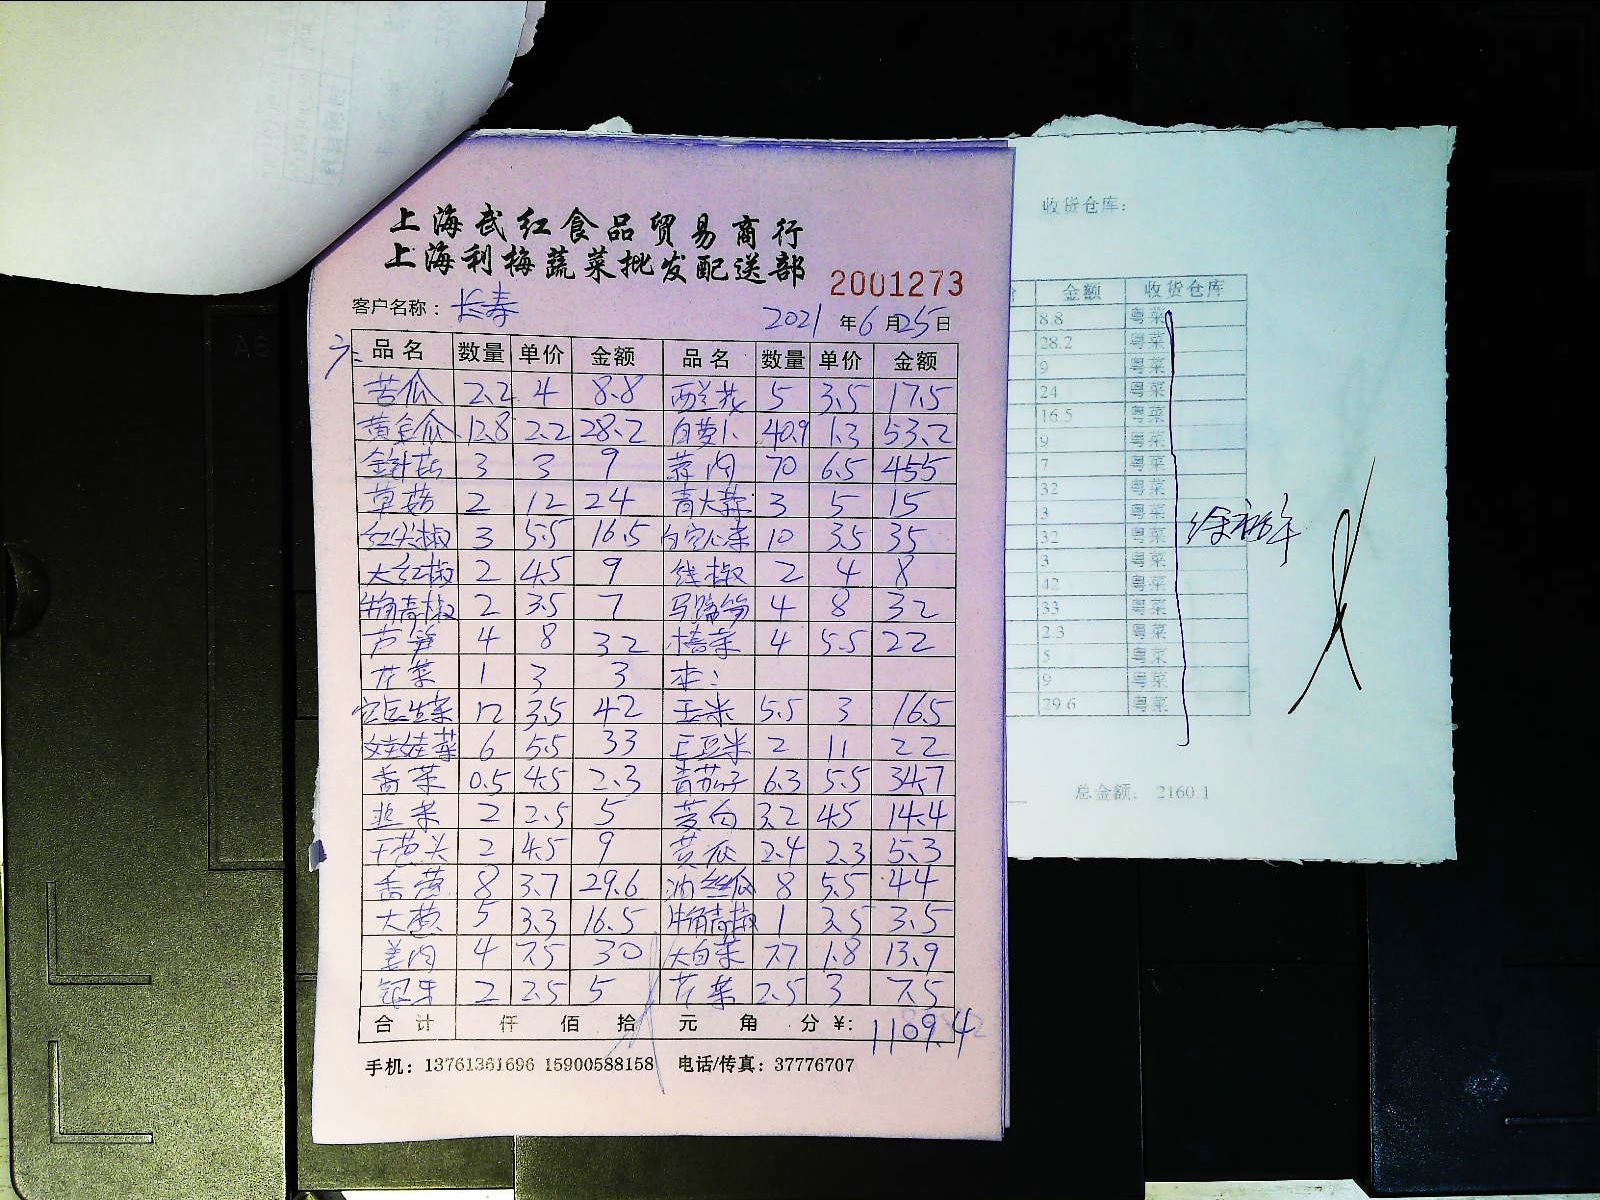 上海武红食品贸易商行
上海利梅蔬菜批发配送部
2001273
客户名称：长寿 2021年6月25日
品名 数量 单价 金额 品名 数量 单价 金额
苦瓜 2.2 4 8.8 西兰花 5 3.5 17.5
黄金瓜 12.8 2.2 28.2 白萝卜 40.9 1.3 53.2
金针菇 3 3 9 蒜肉 70 6.5 455
草菇 2 12 24 青大蒜 3 5 15
红尖椒 3 5.5 16.5 白空心菜 10 3.5 35
大红椒 2 4.5 9 线椒 2 4 8
牛角青椒 2 3.5 7 马蹄笋 4 8 32
芦笋 4 8 32 4 5.5 22
花菜 1 3 3 本：
12 3.5 42 玉米 5.5 3 16.5
娃娃菜 6 5.5 33 毛豆米 2 11 22
香菜 0.5 4.5 2.3 青茄子 6.3 5.5 34.7
韭菜 2 2.5 5 茭白 3.2 4.5 14.4
干葱头 2 4.5 9 黄瓜 2.4 2.3 5.3
香葱 8 3.7 29.6 油丝瓜 8 5.5 44
大葱 5 3.3 16.5 牛角青椒 1 3.5 3.5
姜肉 4 7.5 30 大白菜 7.7 1.8 13.9
银牙 2 2.5 5 花菜 2.5 3 7.5
合计 仟 佰 拾 元 角 分 ¥: 1109.4
手机：13761361696 15900588158 电话/传真：37776707
收货仓库：
金额 收货仓库
8.8 粤菜
28.2 粤菜
9 粤菜
24 粤菜
16.5 粤菜
9 粤菜
7 粤菜
32 粤菜
3 粤菜
32 粤菜
3 粤菜
42 粤菜
33 粤菜
2.3 粤菜
5 粤菜
9 粤菜
29.6 粤菜
总金额：2160.1